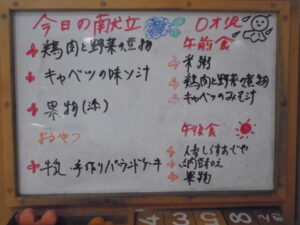 今日の献立
鶏肉と野菜の煮物
キャベツの味ソ汁
果物(漆)
おやつ
牛乳・手作りパウンドケーキ
0才児
午前食
米粥
鶏肉と野菜の煮物
キャベツのみそ汁
午後食
しらすおじや
納豆和え
果物